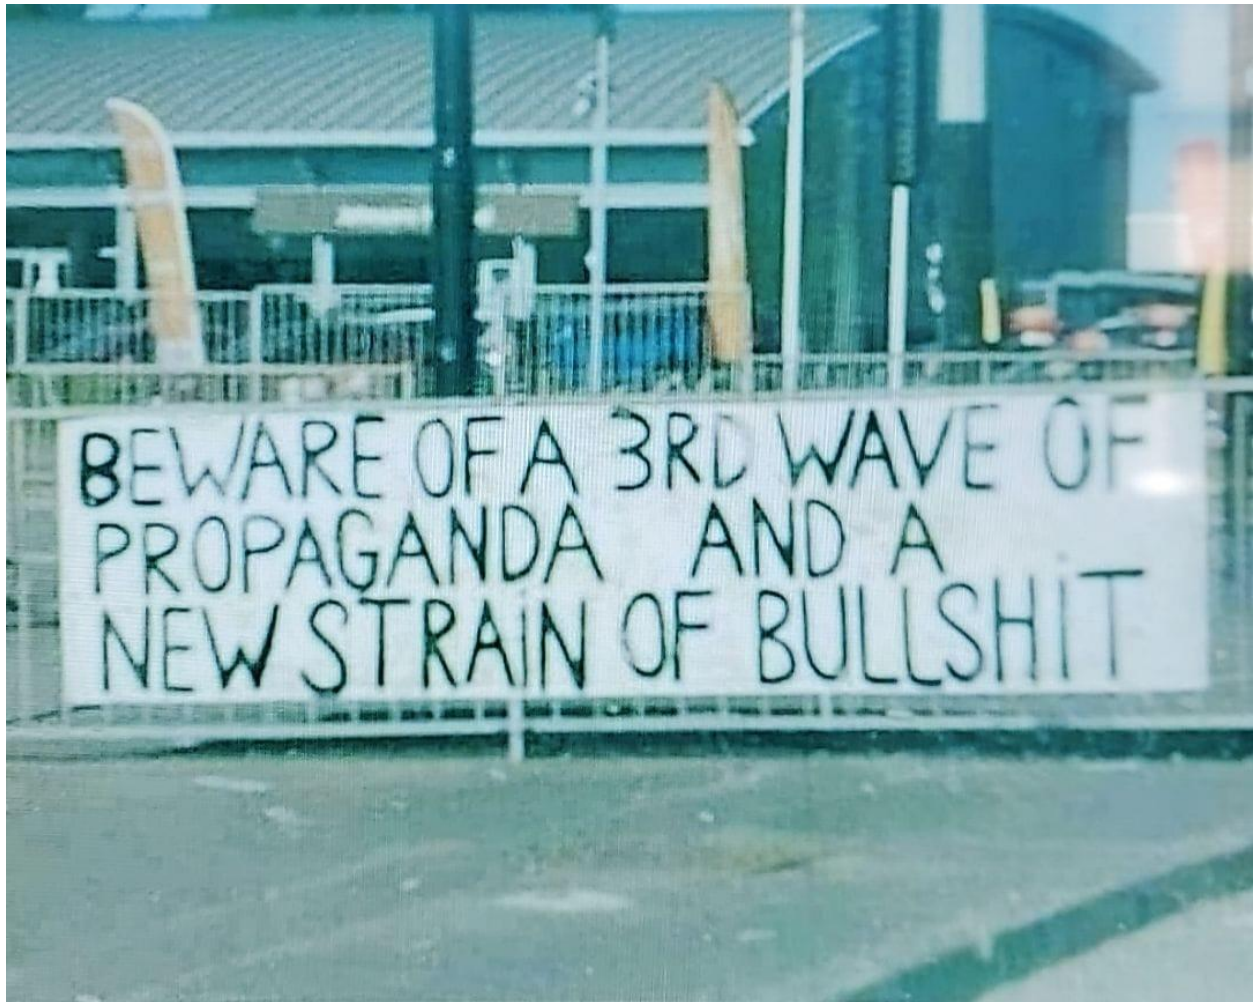 BEWARE OF A 3RD WAVE OF
PROPAGANDA AND A
NEW STRAiN OF BULLSHiT